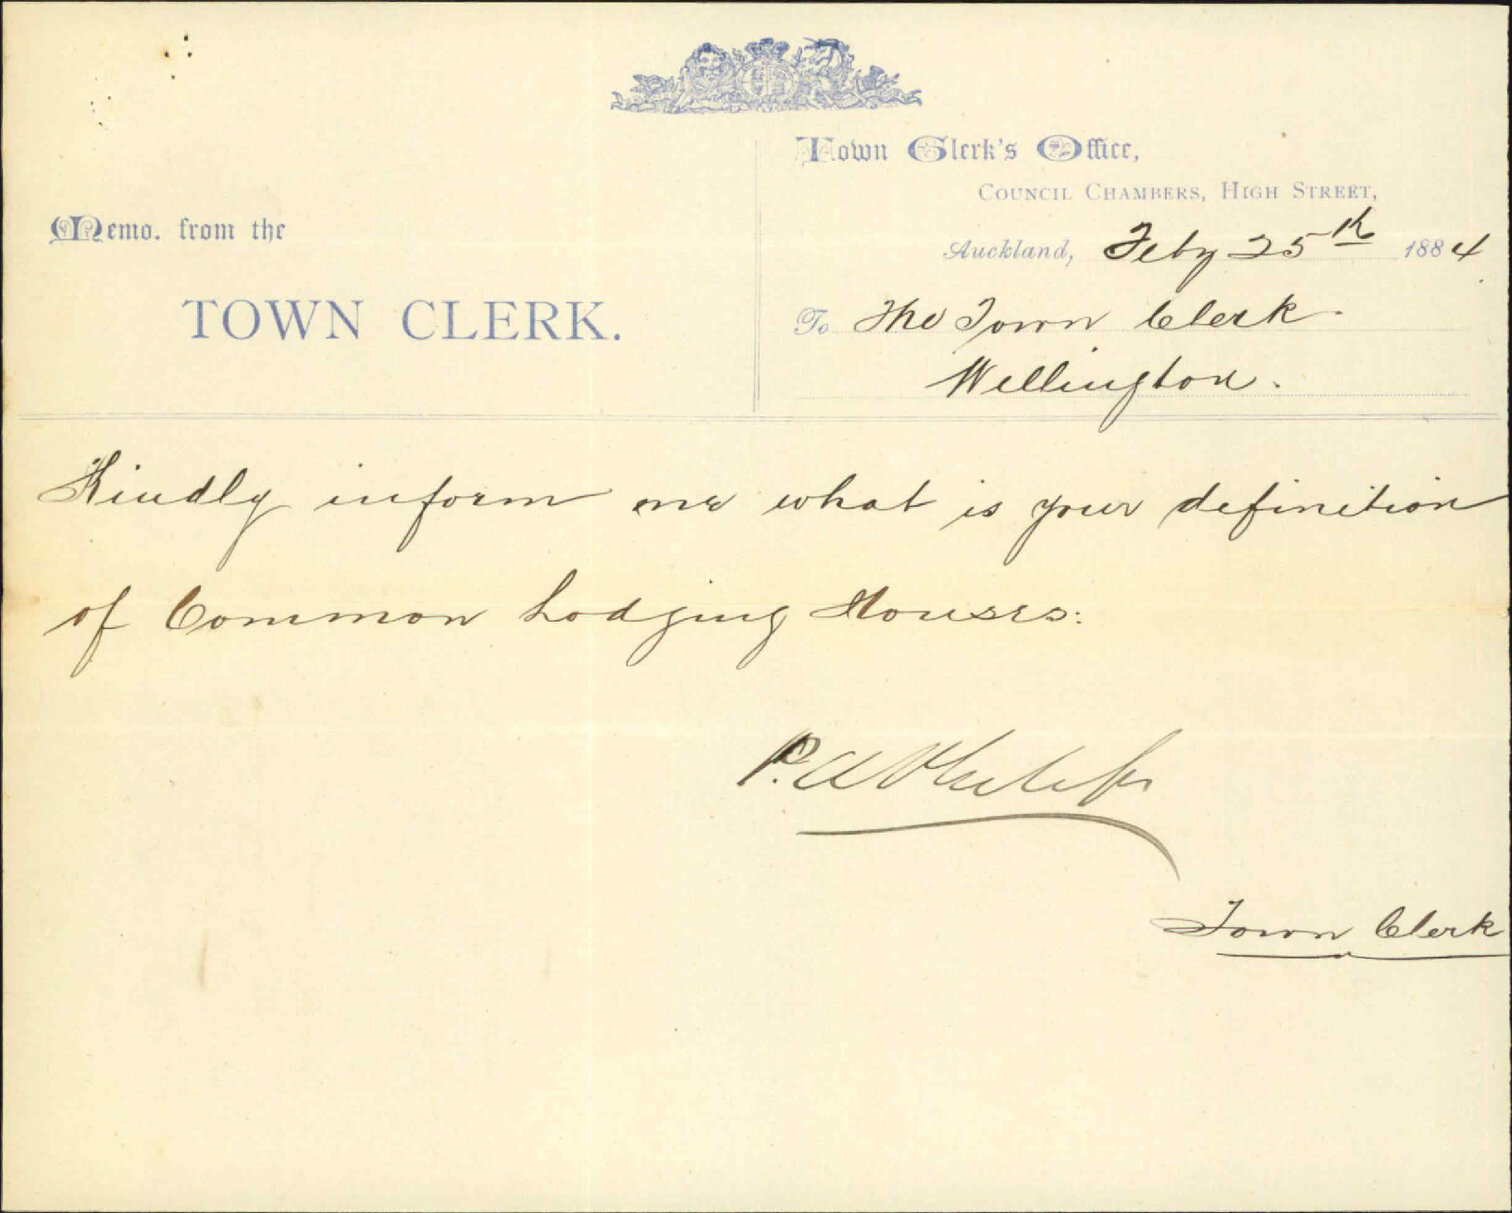 Town Clerk's Office,
COUNCIL CHAMBERS, HIGH STREET,
Memo. from the
Auckland, Feby 25th 1884
TOWN CLERK.
To The Town Clerk.
Wellington.
Kindly inform me what is your definition
of Common Lodging Houses:
P. A. Philips
Town Clerk